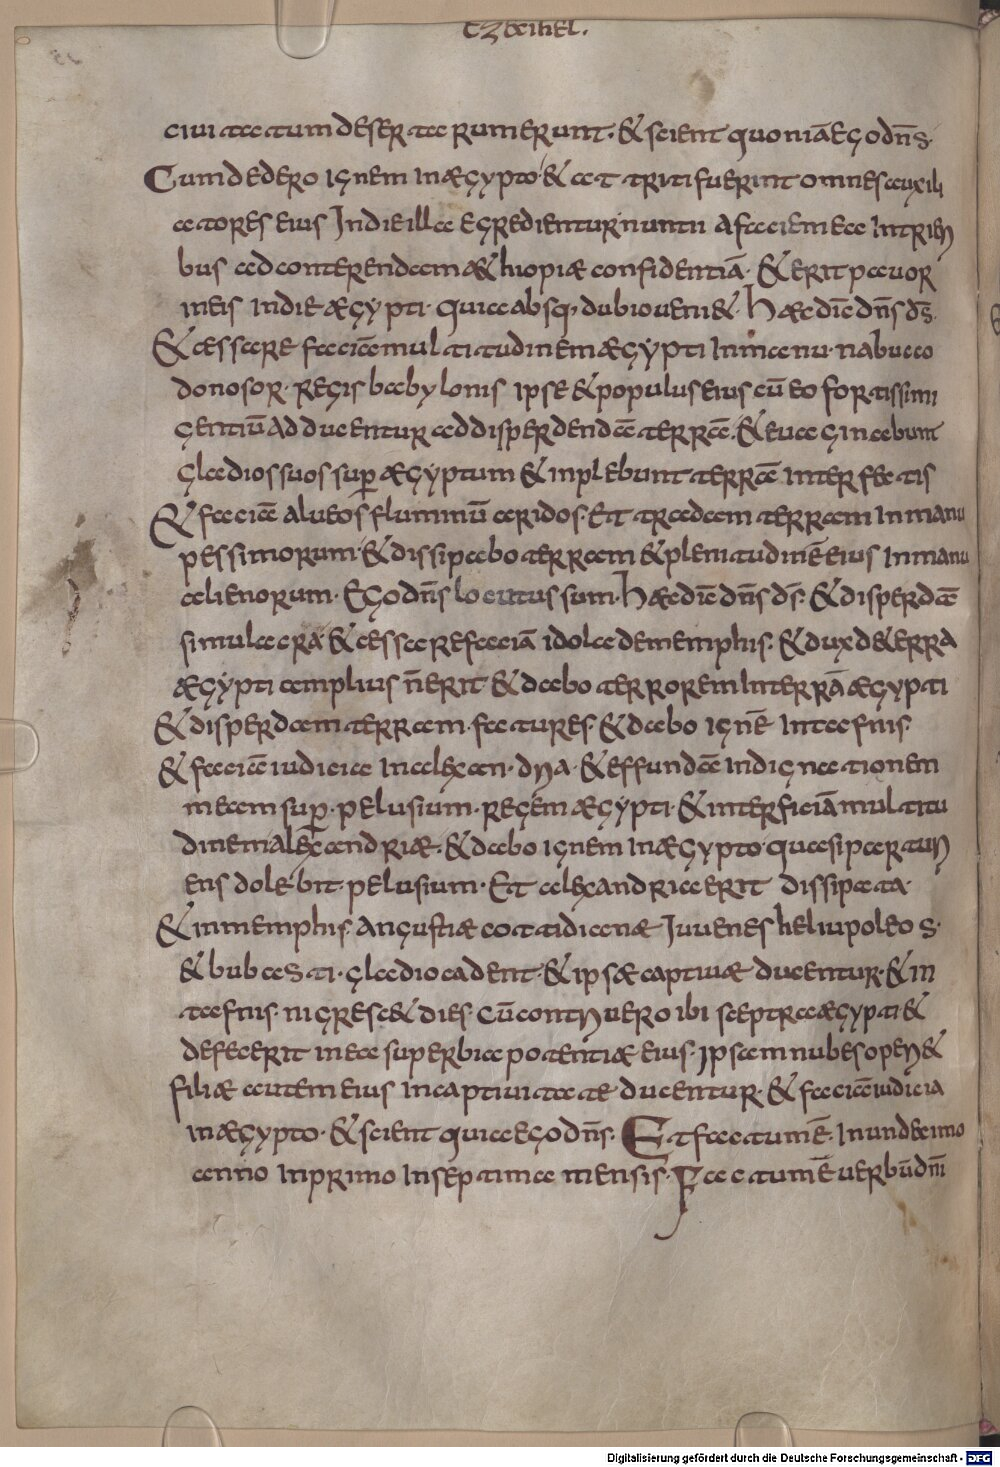 EZECHIEL.
civitatum desertarum erunt. & scient quoniā ego dn̄s.
Cum dedero ignem in ægypto & attriti fuerint omnes auxili
atores eius In die illa egredientur nuntii a facie mea In trieri
bus ad conterendam æthiopiæ confidentiā. & erit pavor
in eis In die ægypti. quia absq; dubio veni&. Hæc dic̄ dn̄s ds̄.
& cessare faciā multitudinem ægypti In manu nabuco
donosor. regis babylonis ipse & populus eius cū eo fortissimi
gentiū adducentur ad disperdendā terrā. & evaginabunt
gladios suos sup ægyptum & implebunt terrā interfectis
& faciā alveos fluminū aridos. Et tradam terram In manu
pessimorum. & dissipabo terram & plenitudinē eius In manu
alienorum. Ego dn̄s locutus sum. Hæc dic̄ dn̄s ds̄. & disperdā
simulacra & cessare faciā idola de memphis. & dux de terra
ægypti amplius n̄ erit & dabo terrorem In terrā ægypti
& disperdam terram fatures. & dabo ignē In tafnis.
& faciā iudicia In alexan. dria. & effundā indignationem
meam sup. pelusium. regem ægypti. & interficiā multitu
dinem alexandriæ. & dabo ignem In ægypto quasi parturi
ens dolebit pelusium. Et alexandria erit dissipata.
& in memphis angustiæ cottidianæ Juvenes heliupoleos.
& bubasti. gladio cadent. & ipsæ captivæ ducentur. & in
tafnis. nigresc& dies. Cū contrivero ibi sceptra ægypti &
defecerit in ea superbia potentiæ eius. ipsam nubes operi&
filiæ autem eius In captivitate ducentur. & faciā iudicia
in ægypto. & scient quia ego dn̄s. Et factum ē. In undecimo
anno In primo In septima mensis. Factum ē verbū dn̄i
Digitalisierung gefördert durch die Deutsche Forschungsgemeinschaft - DFG